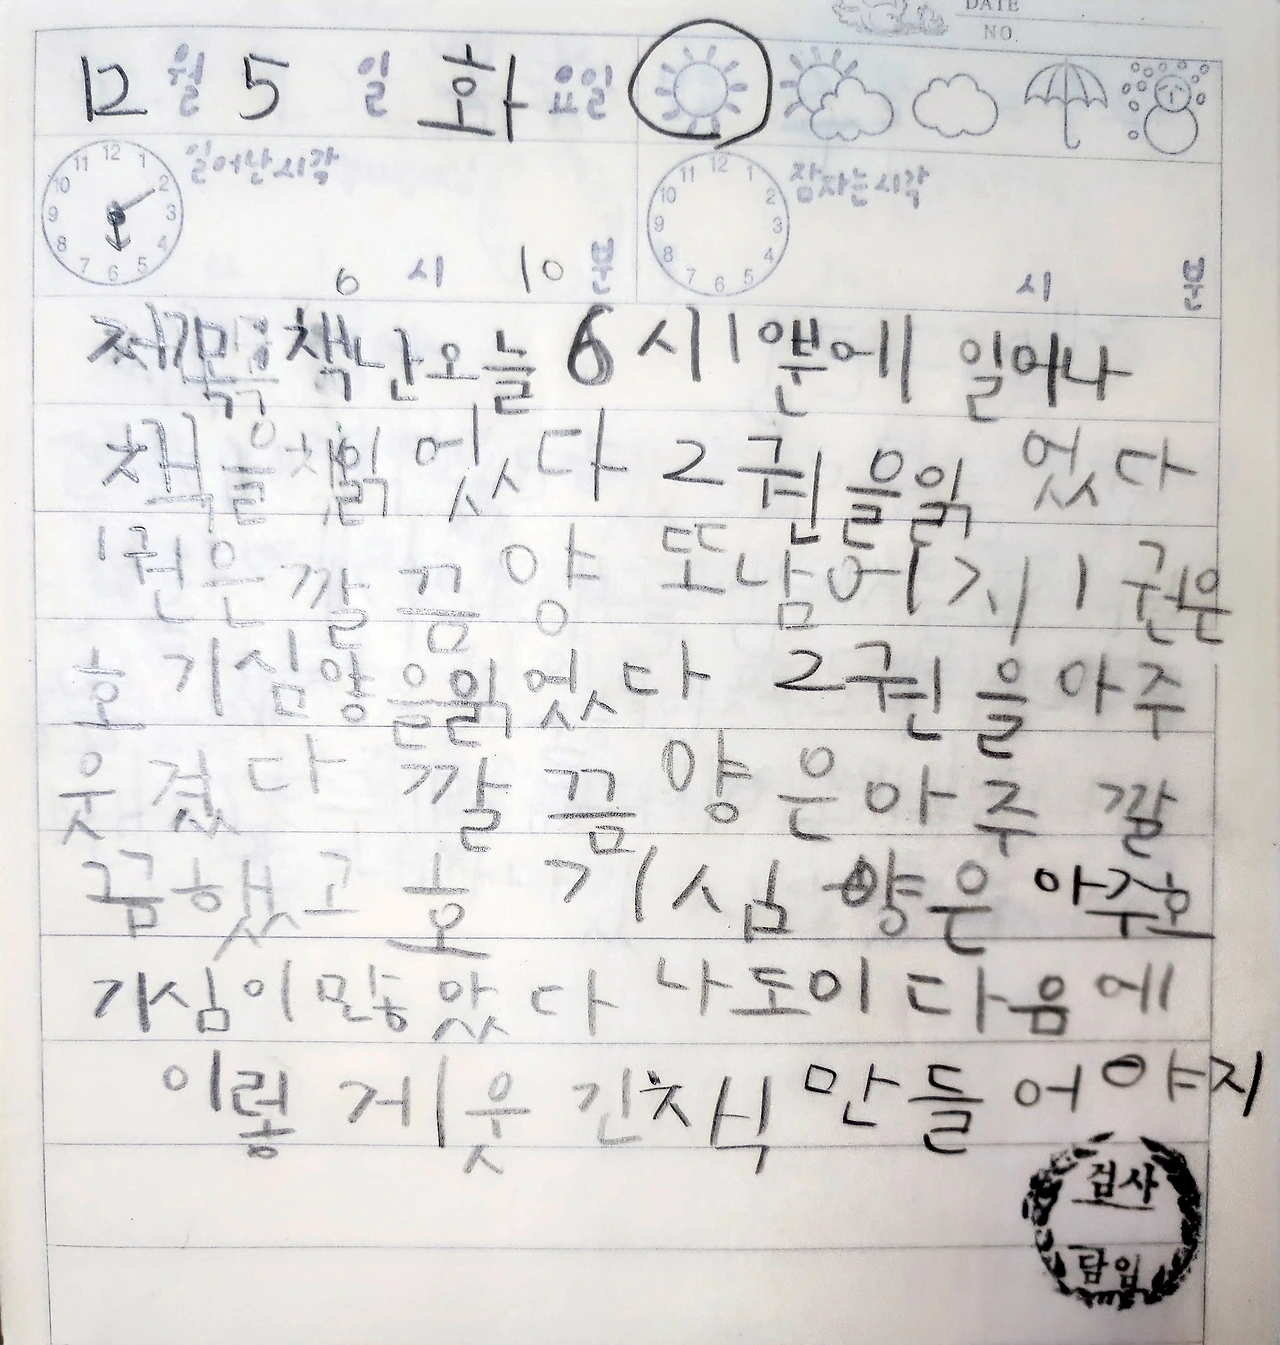 DATE
NO.
12 월 5 일 화 요일
일어난시각 잠자는시각
6 시 10 분 시 분
제목 책 난오늘 6시1분에 일어나
책을 읽 었다 2권을읽 었다
1권은 깔끔양 또남어지 1권은
호기심양을읽었다 2권을아주
웃겼다 깔끔양은아주 깔
끔했고 호기심양은 아주호
기심이 많았다 나도이다음에
이렇게웃긴 책 만들어야지
검사
담임